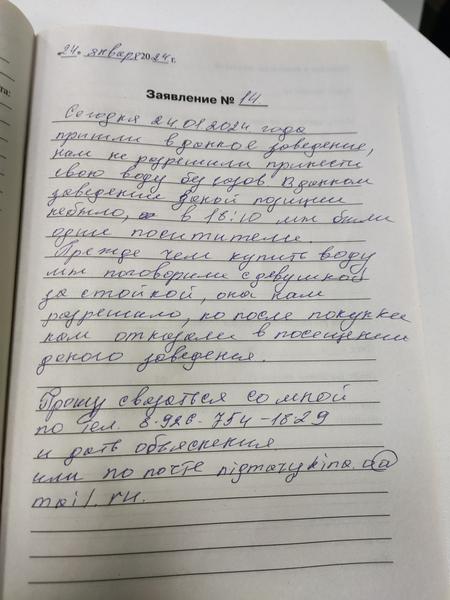 24. января 2024 г.
Заявление № 14
Сегодня 24.01.2024 года
пришли в данное заведение,
нам не разрешили принести
свою воду без газов. В данном
заведении даной позиции
небыло, в 18:10 мы были
одни поситители.
Прежде чем купить воду
мы поговорили с девушкой
за стойкой, она нам
разрешило, но после покупки
нам отказали в посещении
даного заведения.
Прошу связаться со мной
по тел. 8-926-754-18-29
и дать объяснения
или по почте
mail.ru.